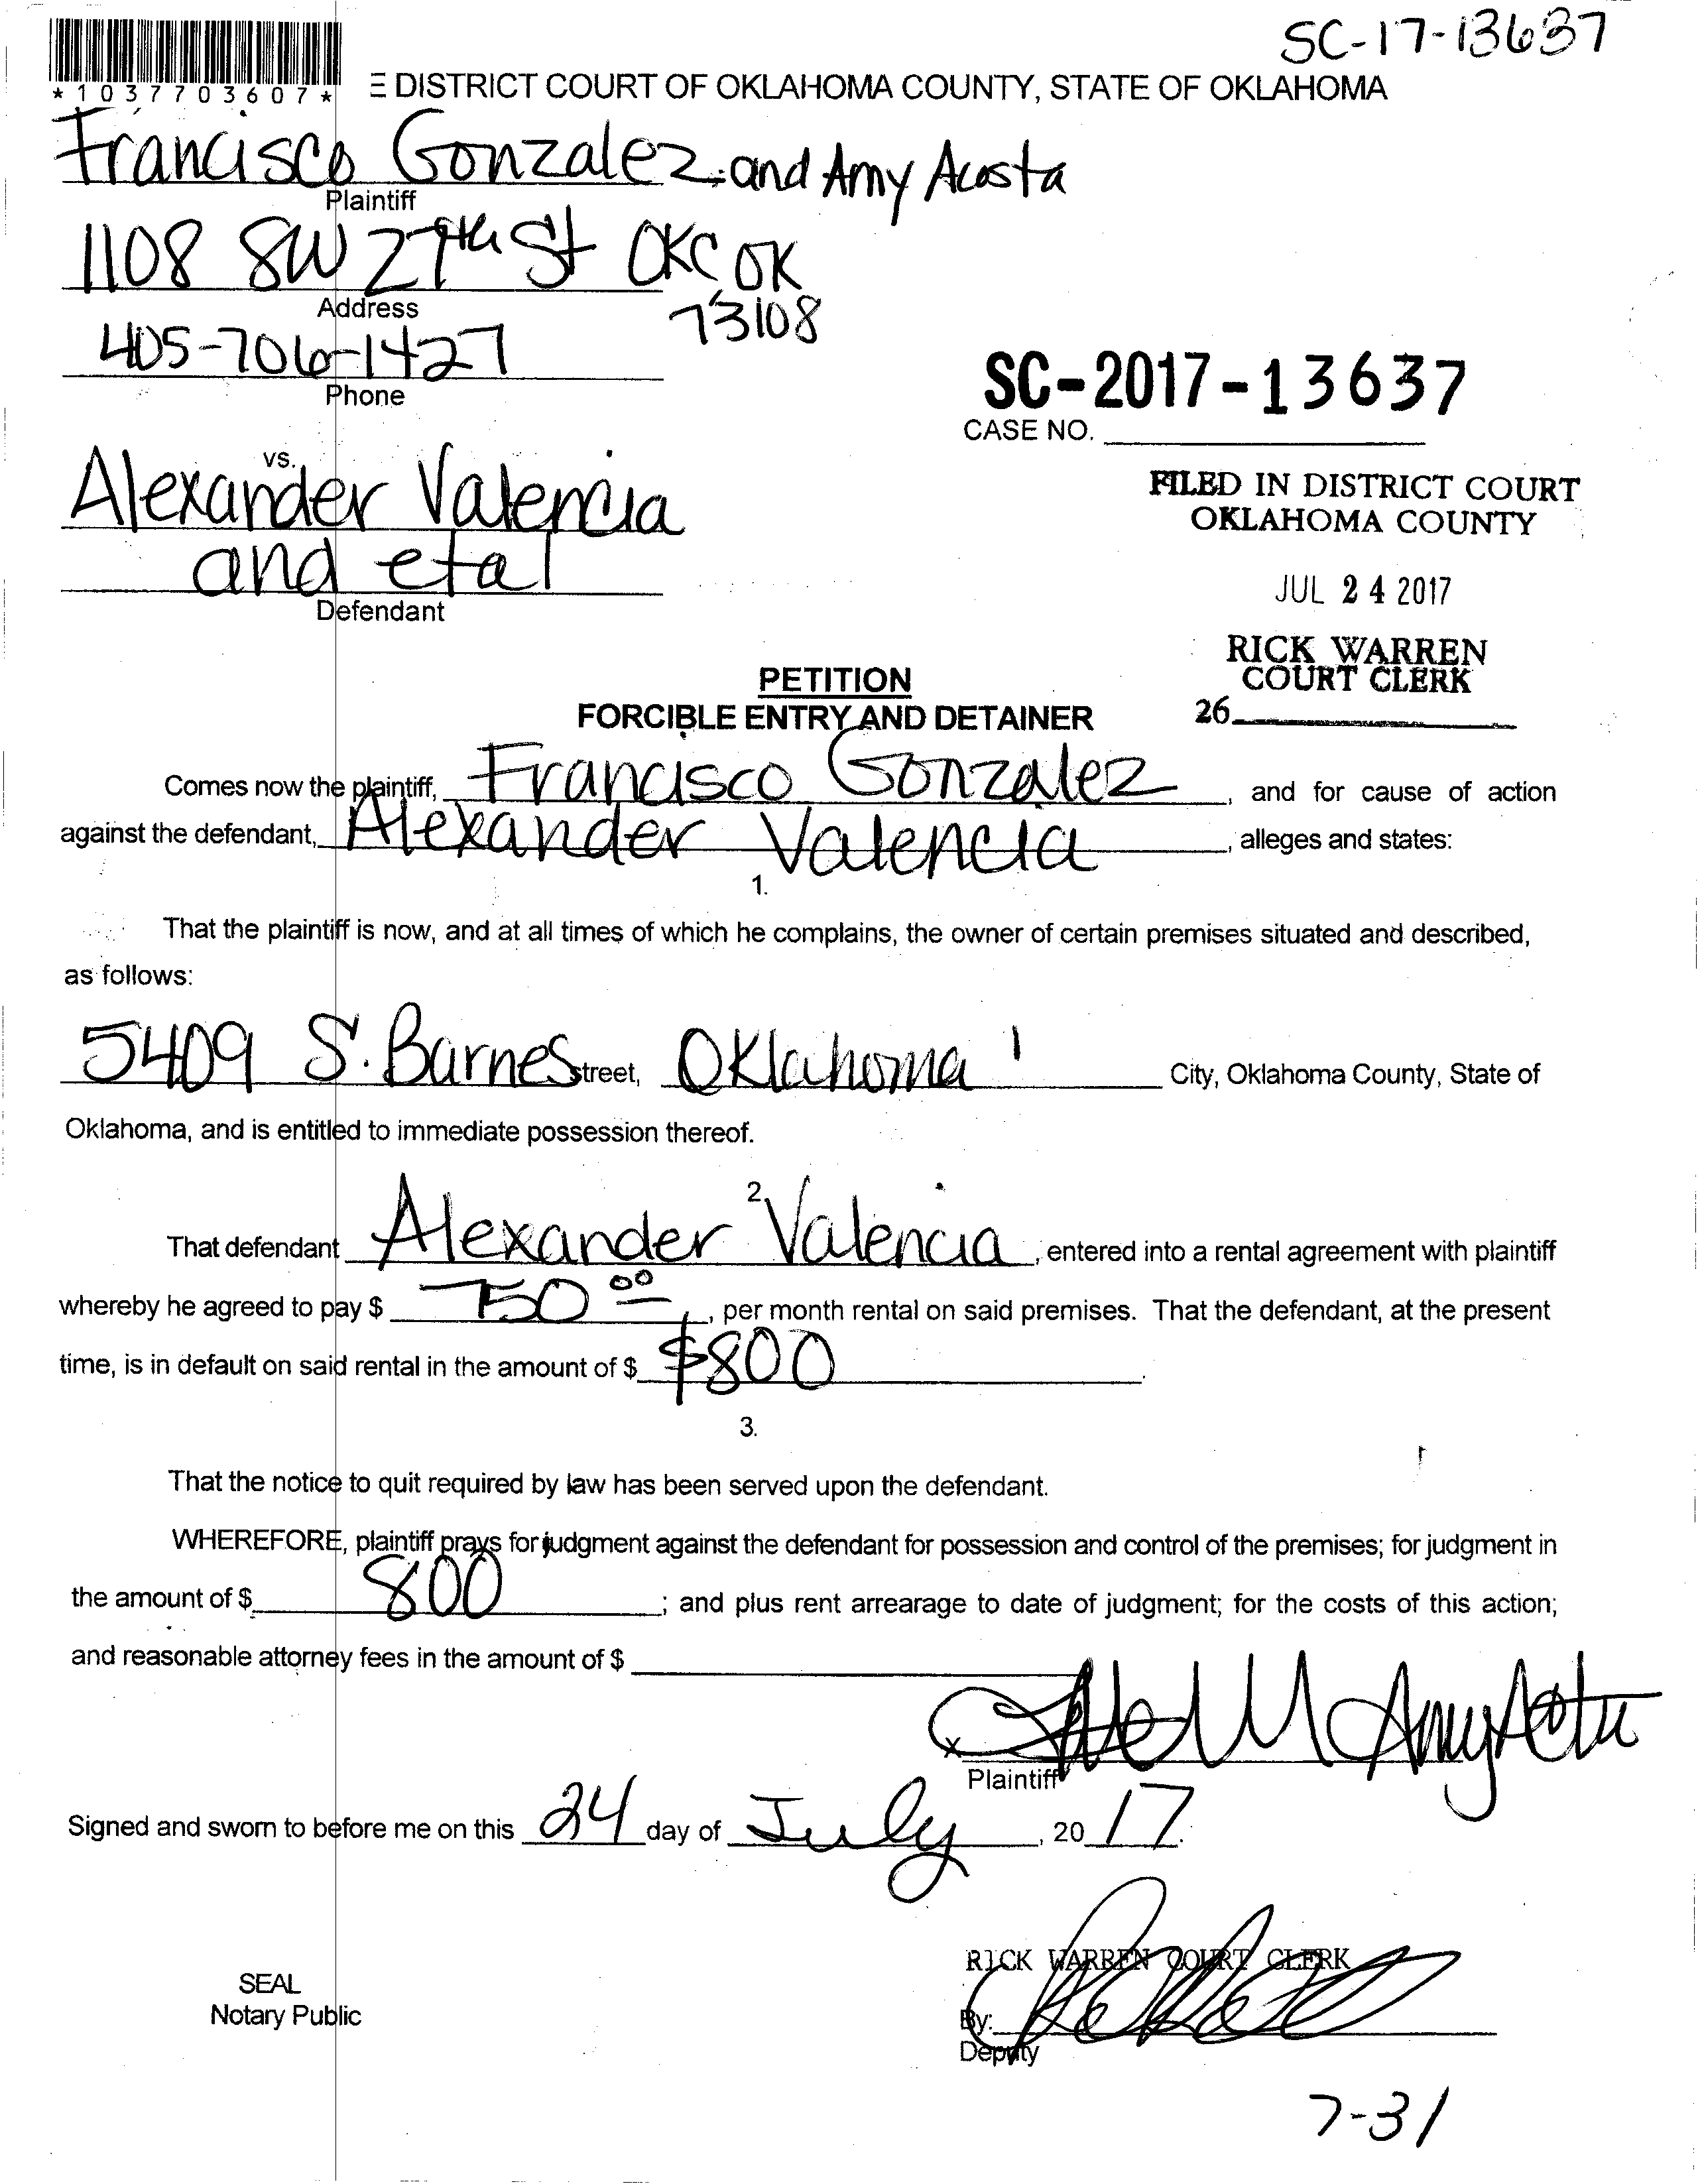 SC-17-13637
*1037703607*
E DISTRICT COURT OF OKLAHOMA COUNTY, STATE OF OKLAHOMA
Francisco Gonzalez and Amy Acosta
Plaintiff
1108 SW 27th St OKC OK
73108
Address
405-706-1427
Phone
SC-2017-13637
CASE NO.
vs.
Alexander Valencia
and etal
Defendant
FILED IN DISTRICT COURT
OKLAHOMA COUNTY
JUL 24 2017
RICK WARREN
COURT CLERK
26
PETITION
FORCIBLE ENTRY AND DETAINER
Comes now the plaintiff, Francisco Gonzalez, and for cause of action
against the defendant, Alexander Valencia, alleges and states:
1.
That the plaintiff is now, and at all times of which he complains, the owner of certain premises situated and described,
as follows:
5409 S. Barnes Street, Oklahoma City, Oklahoma County, State of
Oklahoma, and is entitled to immediate possession thereof.
2.
That defendant Alexander Valencia, entered into a rental agreement with plaintiff
whereby he agreed to pay $ 750 00, per month rental on said premises. That the defendant, at the present
time, is in default on said rental in the amount of $ $800.
3.
That the notice to quit required by law has been served upon the defendant.
WHEREFORE, plaintiff prays for judgment against the defendant for possession and control of the premises; for judgment in
the amount of $ 800; and plus rent arrearage to date of judgment; for the costs of this action;
and reasonable attorney fees in the amount of $
x
Plaintiff
Signed and sworn to before me on this 24 day of July, 2017.
RICK WARREN COURT CLERK
SEAL
Notary Public
By:
Deputy
7-31